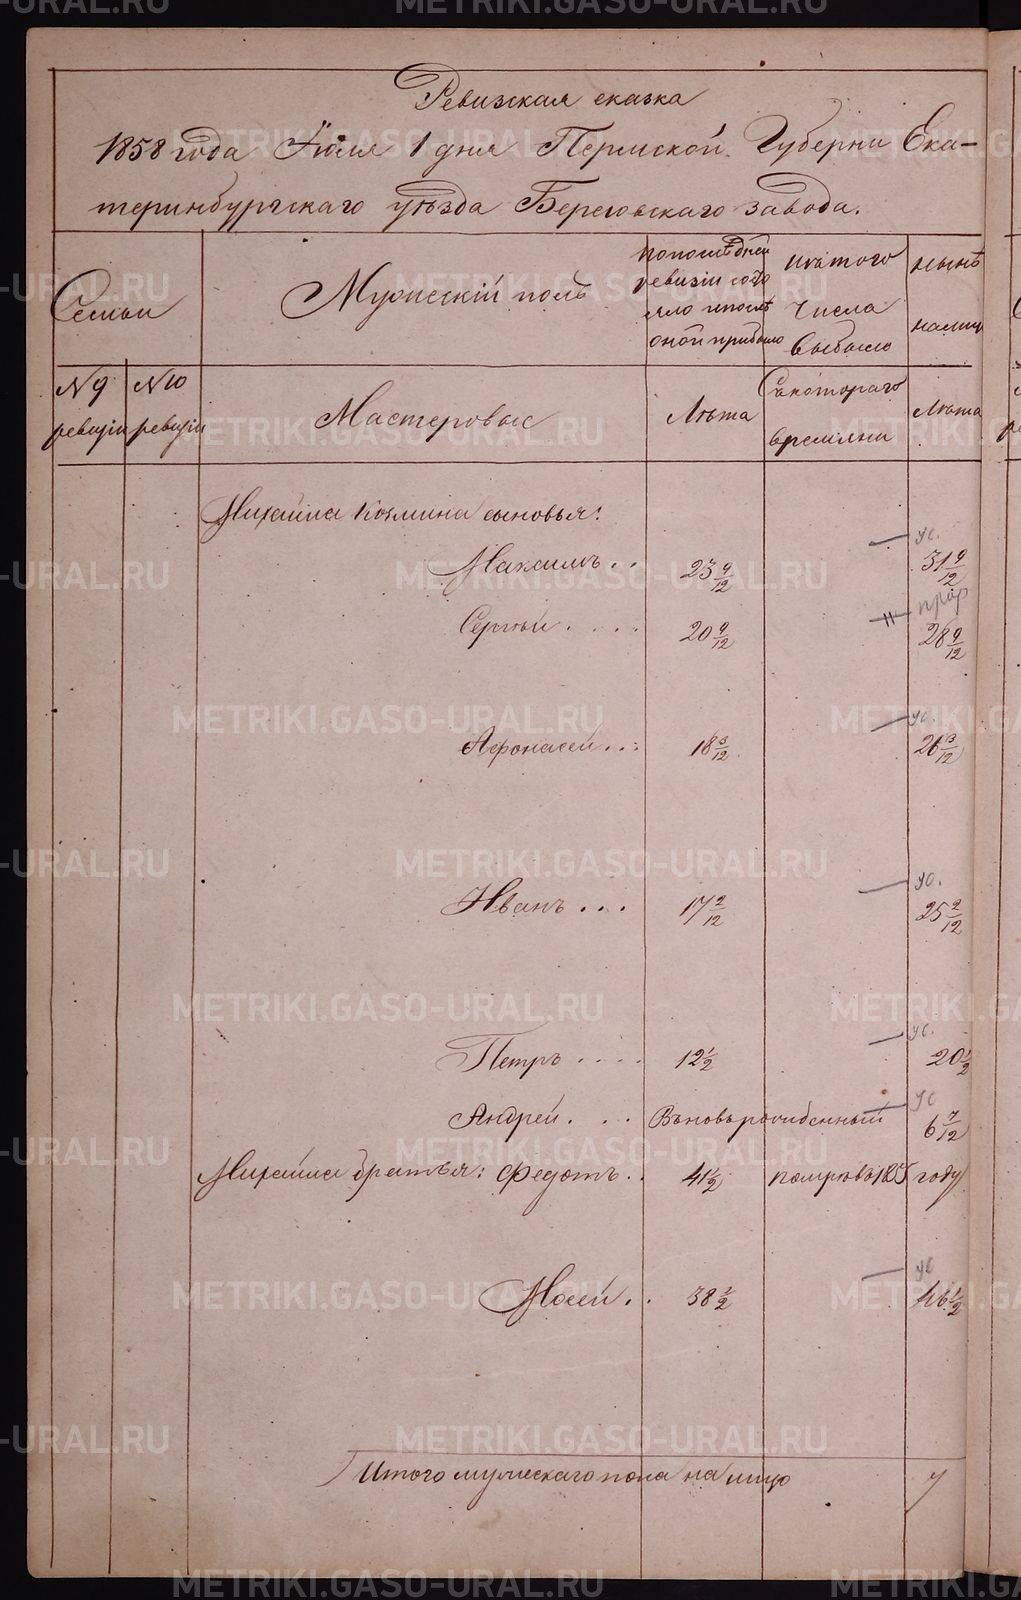 Ревизская сказка
1858 года Июля 1 дня Пермской Губерни Ека-
теринбургскаго уѣзда Березовскаго завода.
Семьи
Мужескій полъ
по послѣдней
ревизіи состо
яло и послѣ
оной прибыло
изъ того
Числа
выбыло
нынѣ
на лицо
№ 9
ревизіи
№ 10
ревизіи
Мастеровые
Лѣта
Съ котораго
времяни
Лѣта
Михайла Козмина сыновья:
ус.
Максимъ . . 23 9/12 31 9/12
Сергѣй . . . . 20 9/12 28 9/12
ус.
Афонасей . . : 18 3/12 26 3/12
ус.
Иванъ . . . 17 2/12 25 2/12
ус.
Петръ . . . . 12 1/2 20 1/2
ус
Андрей . . . Вновь рожденный 6 7/12
Михайла братья: Федотъ . . 41 1/2 году
ус
Мосей . . 38 1/2 46 1/2
Итого мужескаго пола на лицо 7
METRIKI.GASO-URAL.RU